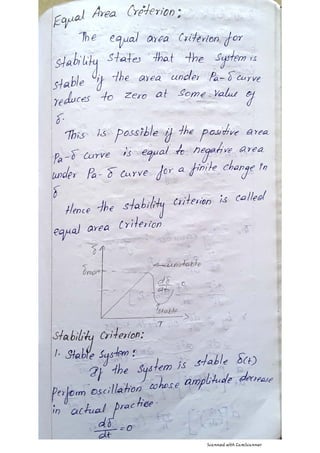 Equal Area Criterion:
The equal area Criterion for
Stability States that the System is
Stable if the area under Pa-δ curve
reduces to zero at Some value of
δ.
This is possible if the positive area
Pa-δ curve is equal to negative area
under Pa-δ curve for a finite change in
δ
Hence the stability Criterion is called
equal area Criterion
δ
unstable
dδ/dt = 0
Stable
T
Stability Criterion:
1. Stable System:
If the System is stable δ(t)
Perform oscillation whose amplitude decrease
in actual practice.
dδ/dt = 0
Scanned with CamScanner